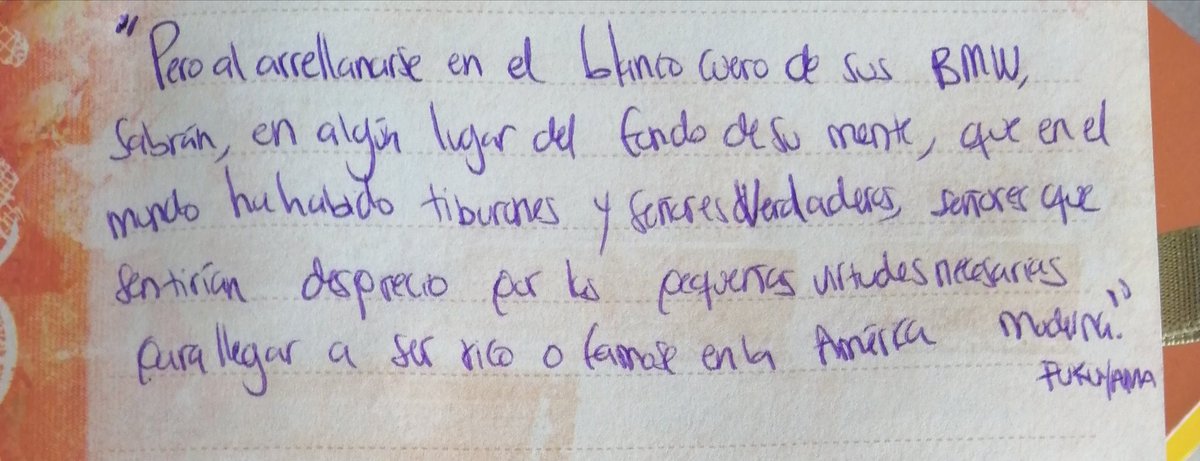 "Pero al arrellanarse en el blanco cuero de sus BMW,
sabrán, en algún lugar del fondo de su mente, que en el
mundo ha habido tiburones y señores verdaderos, señores que
sentirían desprecio por las pequeñas virtudes necesarias
para llegar a ser rico o famoso en la América moderna."
FUKUYAMA